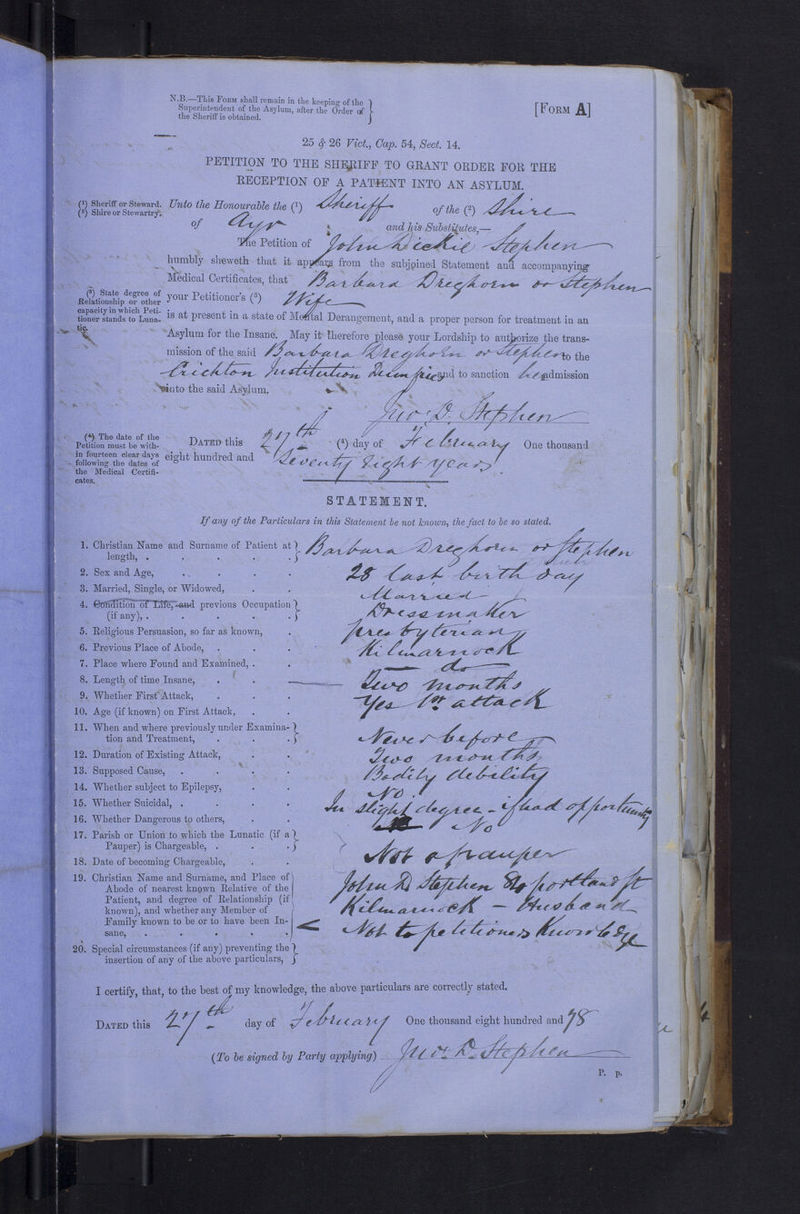 N.B.—This Form shall remain in the keeping of the
Superintendent of the Asylum, after the Order of
the Sheriff is obtained.
[Form A]
25 & 26 Vict., Cap. 54, Sect. 14.
PETITION TO THE SHERIFF TO GRANT ORDER FOR THE
RECEPTION OF A PATIENT INTO AN ASYLUM.
(1) Sheriff or Steward.
(2) Shire or Stewartry.
Unto the Honourable the (1) Sheriff of the (2) Shire
of Ayr and his Substitutes,—
The Petition of John Dickie Stephen
humbly sheweth that it appears from the subjoined Statement and accompanying
Medical Certificates, that Barbara Dreghorn or Stephen
(3) State degree of
Relationship or other
capacity in which Peti-
tioner stands to Luna-
tic.
your Petitioner's (3) Wife
is at present in a state of Mental Derangement, and a proper person for treatment in an
Asylum for the Insane. May it therefore please your Lordship to authorize the trans-
mission of the said Barbara Dreghorn or Stephen to the
Crichton Institution Dumfries and to sanction her admission
into the said Asylum.
Jno. D. Stephen
(4) The date of the
Petition must be with-
in fourteen clear days
following the dates of
the Medical Certifi-
cates.
Dated this 27th (4) day of February One thousand
eight hundred and Seventy Eight years.
STATEMENT.
If any of the Particulars in this Statement be not known, the fact to be so stated.
1. Christian Name and Surname of Patient at
length, . . . . . Barbara Dreghorn or Stephen
2. Sex and Age, . . . . 28 last birth day
3. Married, Single, or Widowed, . . Married
4. Condition of Life, and previous Occupation
(if any), . . . . . Dressmaker
5. Religious Persuasion, so far as known, . presbyterian
6. Previous Place of Abode, . . . Kilmarnock
7. Place where Found and Examined, . . — do —
8. Length of time Insane, . . . Two months
9. Whether First Attack, . . . Yes 1st attack
10. Age (if known) on First Attack, . .
11. When and where previously under Examina-
tion and Treatment, . . . Never before
12. Duration of Existing Attack, . . Two months
13. Supposed Cause, . . . . Bodily debility
14. Whether subject to Epilepsy, . . No
15. Whether Suicidal, . . . . In slight degree - if had opportunity
16. Whether Dangerous to others, . . No
17. Parish or Union to which the Lunatic (if a
Pauper) is Chargeable, . . . Not a pauper
18. Date of becoming Chargeable, . .
19. Christian Name and Surname, and Place of
Abode of nearest known Relative of the
Patient, and degree of Relationship (if
known), and whether any Member of
Family known to be or to have been In-
sane, . . . . . .
John D Stephen portland St
Kilmarnock - Husband
Not to petitioners Knowledge
20. Special circumstances (if any) preventing the
insertion of any of the above particulars,
I certify, that, to the best of my knowledge, the above particulars are correctly stated.
Dated this 27th day of February One thousand eight hundred and 78
(To be signed by Party applying) Jno. D. Stephen
P. p.